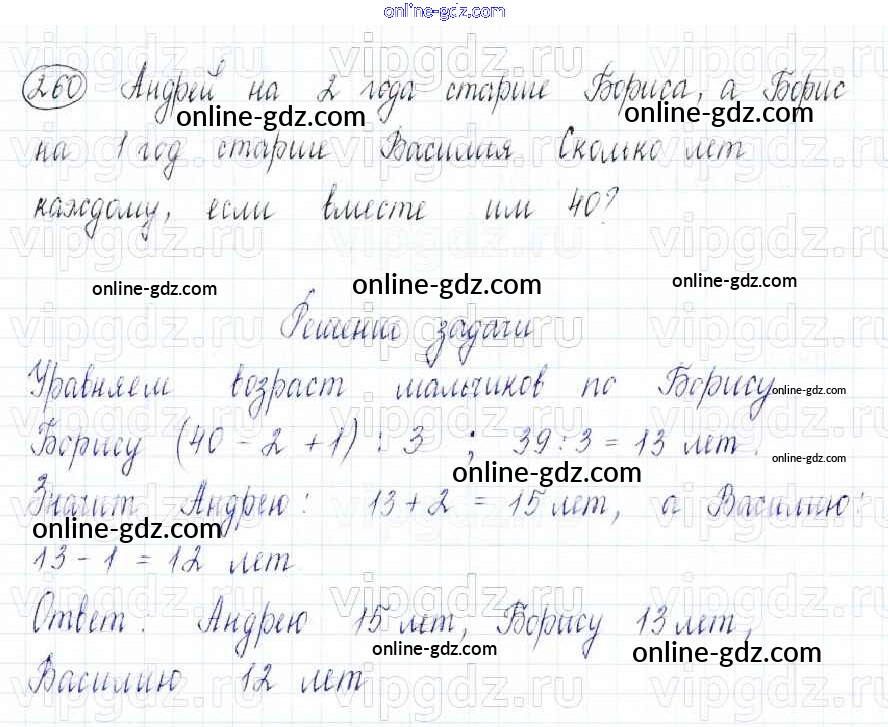 online-gdz.com
260 Андрей на 2 года старше Бориса, а Борис
online-gdz.com online-gdz.com
на 1 год старше Василия Сколько лет
каждому, если вместе им 40?
online-gdz.com online-gdz.com online-gdz.com
Решение задачи
Уравняем возраст мальчиков по Борису
online-gdz.com
Борису (40 - 2 + 1) : 3 ; 39 : 3 = 13 лет.
online-gdz.com online-gdz.com
Значит Андрею: 13 + 2 = 15 лет, а Василию:
online-gdz.com
13 - 1 = 12 лет
Ответ: Андрею 15 лет, Борису 13 лет,
online-gdz.com online-gdz.com
Василию 12 лет